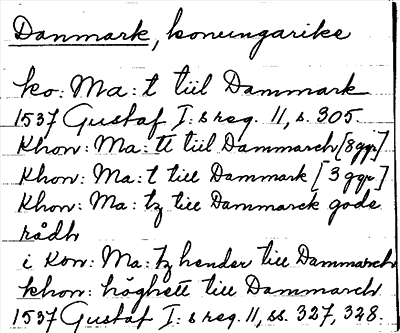 Danmark, konungarike
ko: Ma: t tiil Dammark
1537 Gustaf I:s reg. 11, s. 305.
Khon: Ma: tt tiil Dammarch [8 ggr]
Khon: Ma: t till Dammark [3 ggr]
Khon: Ma: tz till Dammarck gode
rådh
i Kon: Ma: tz hender till Dammarch
khon: höghett till Dammarch
1537 Gustaf I:s reg. 11, ss. 327, 328.